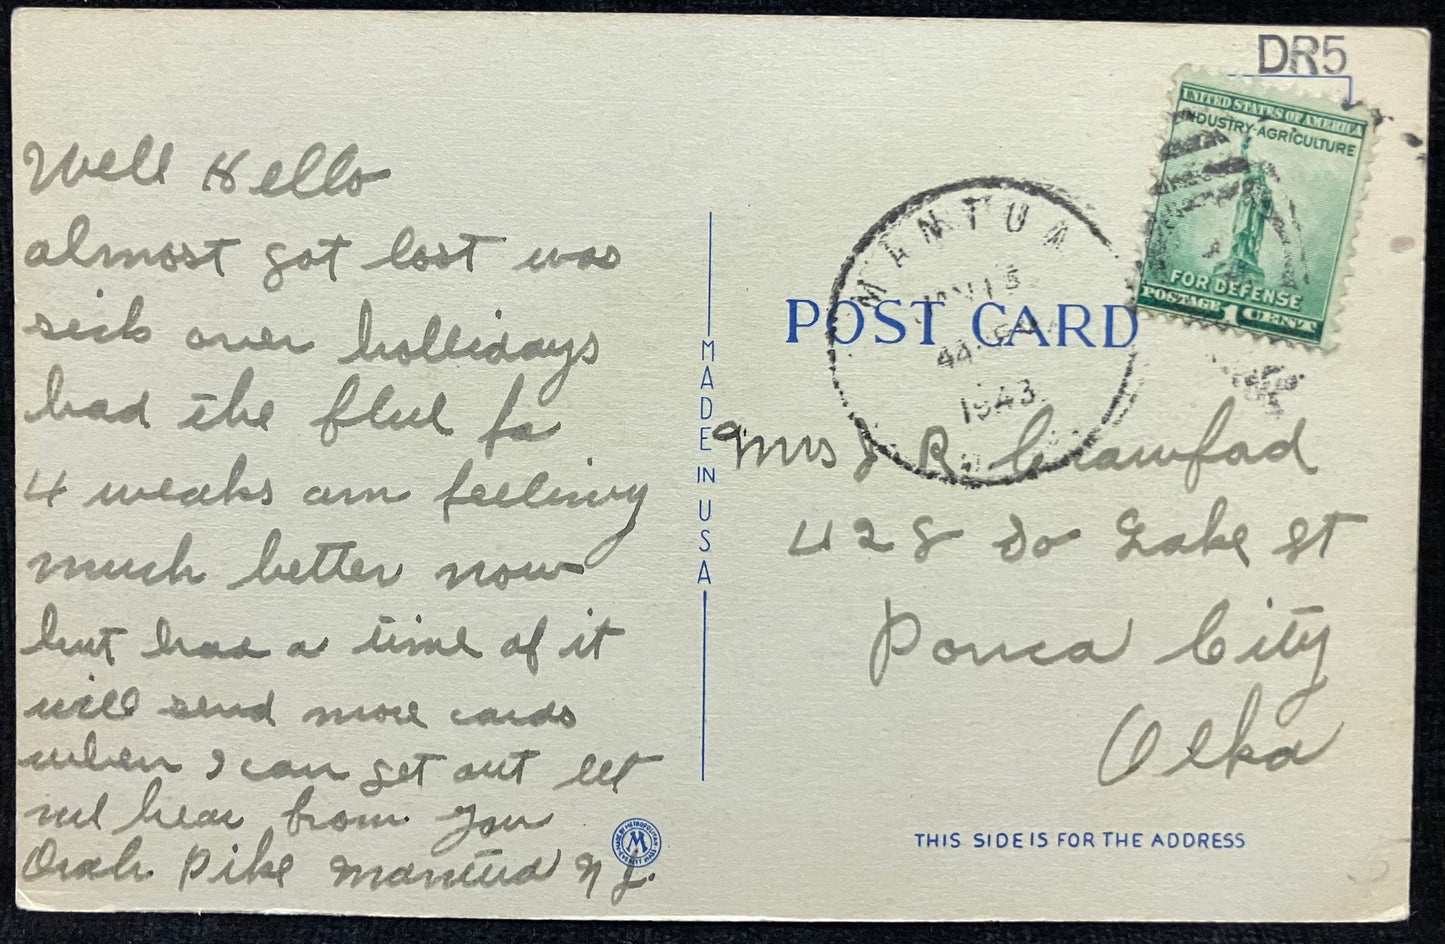 DR5
UNITED STATES OF AMERICA
INDUSTRY-AGRICULTURE
FOR DEFENSE
POSTAGE 1 CENT
MANTUA
JAN 15
1943
POST CARD
Well Hello
almost got lost was
sick over hollidays
had the flue fo
4 weaks am feeling
much better now
but had a time of it
will send more cards
when I can get out let
me hear from you
Orah Pike Mantua N J.
MADE IN USA
Mrs J R Crawfad
428 So Lake St
Ponca City
Olka
THIS SIDE IS FOR THE ADDRESS
MADE BY METROPOLITAN
M
EVERETT MASS